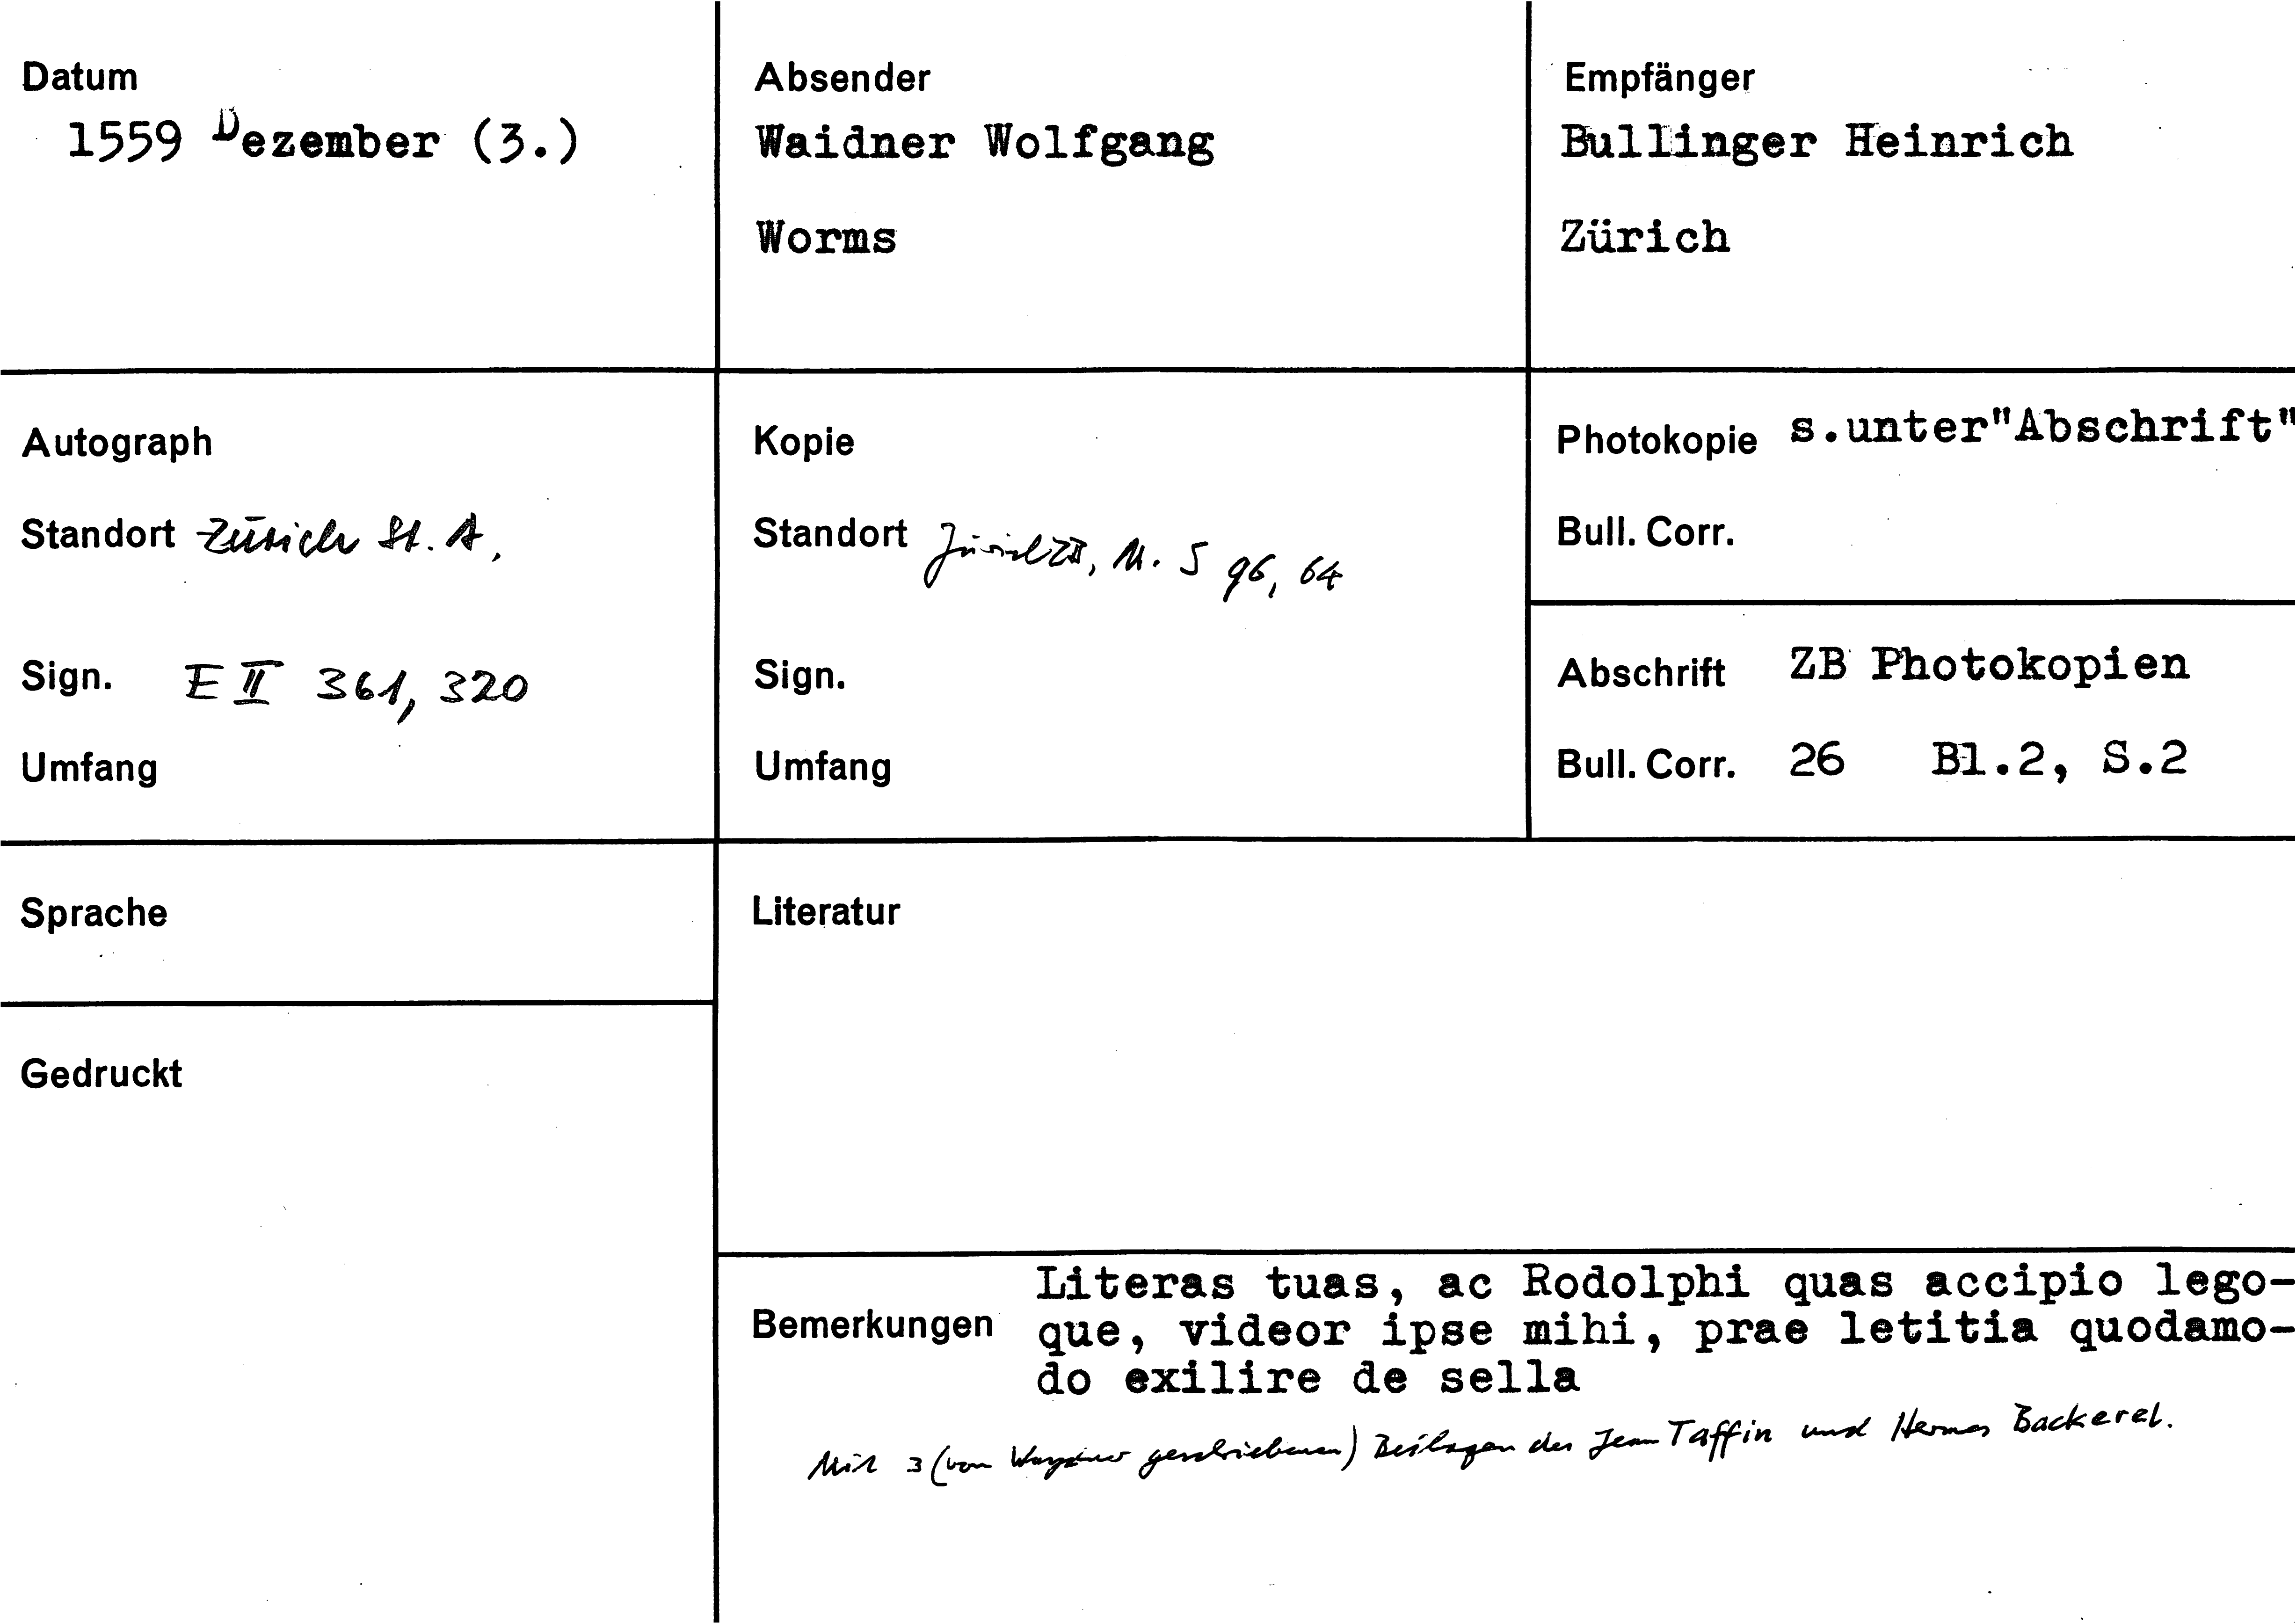 Datum
1559 Dezember (3.)
Absender
Waidner Wolfgang
Worms
Empfänger
Bullinger Heinrich
Zürich
Autograph
Standort Zürich St. A.
Sign. E II 361, 320
Umfang
Kopie
Standort Zürich ZB, M. S 96, 64
Sign.
Umfang
Photokopie s.unter"Abschrift"
Bull. Corr.
Abschrift ZB Photokopien
Bull. Corr. 26 Bl.2, S.2
Sprache
Literatur
Gedruckt
Bemerkungen
Literas tuas, ac Rodolphi quas accipio lego-
que, videor ipse mihi, prae letitia quodamo-
do exilire de sella
Mit 3 (von geschriebenen) Beilagen des Jean Taffin und Hermes Backerel.